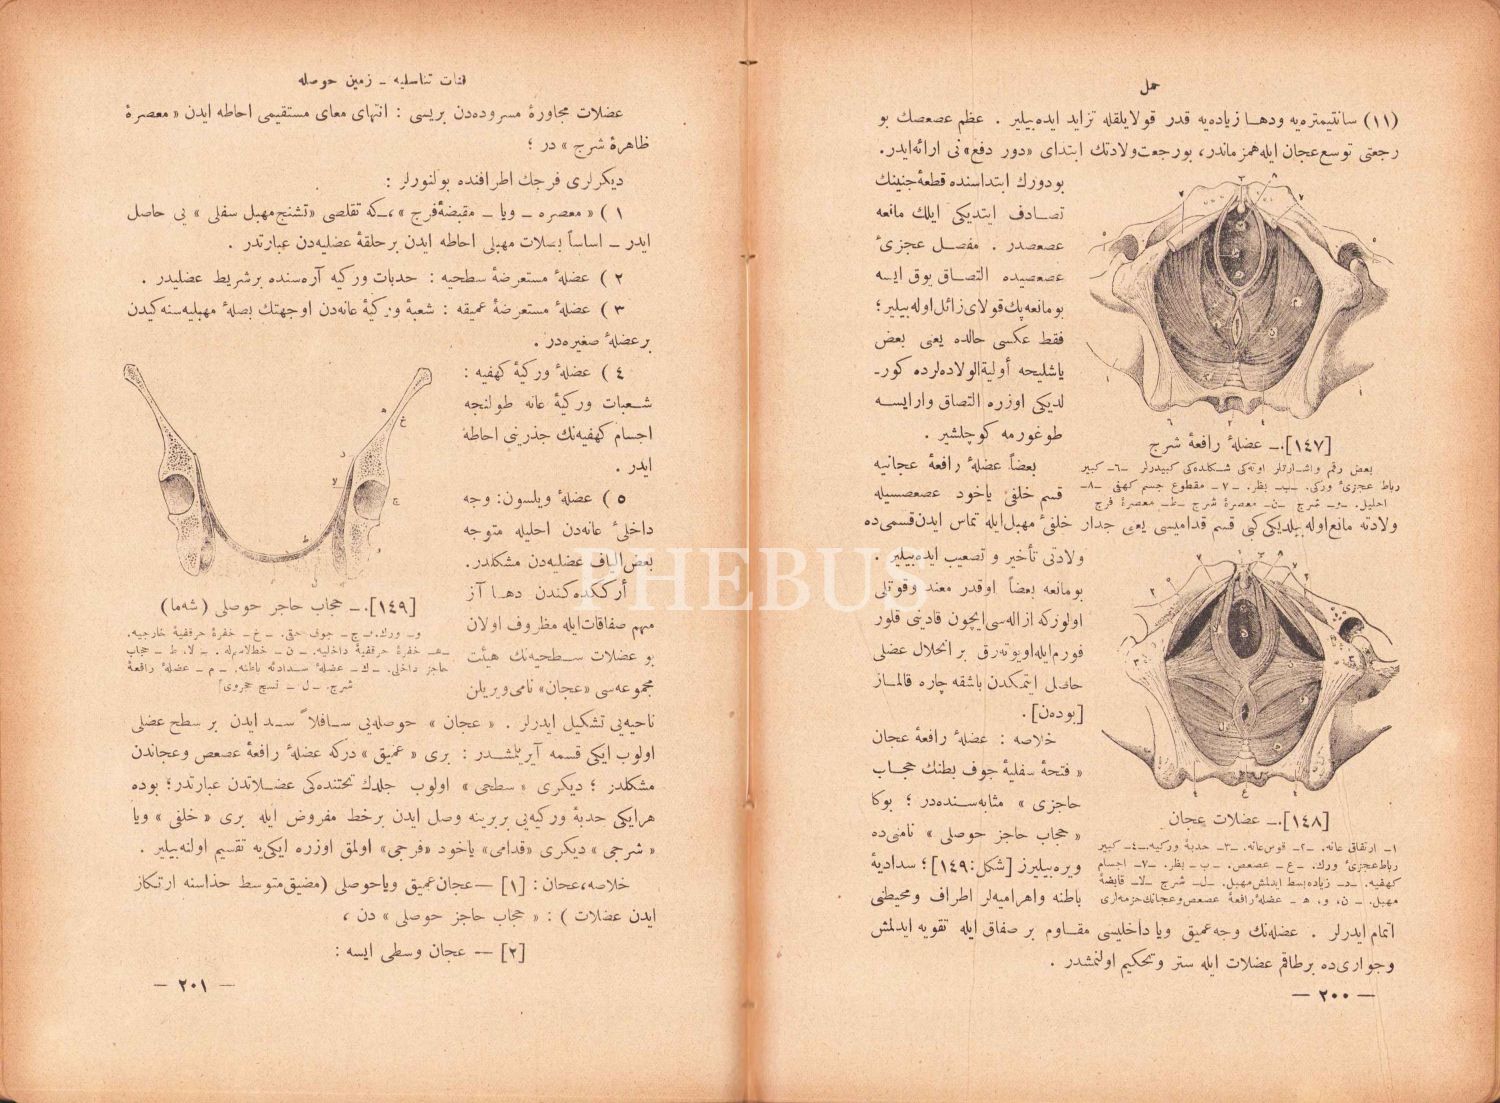 حمل
(١١) سانتیمتره‌یه ودهـا زیاده‌یه قدر قولایلقله تزاید ایده‌بیلیر . عظم عصعصك بو
رجعتی توسع عجان ایله همزماندر، بورجعت ولادتك ابتدای «دور دفع» نی ارائه ایدر.
بودورك ابتداسنده قطعهٔ جنینك
تصـادف ایتدیكی ایلك مانعه
عصعصدر . مفصـل عجزیٔ
عصعصیده التصاق یوق ایسه
بومانعه پك قولای زائل اوله‌بیلیر؛
فقط عكسی حالده یعنی بعض
یاشلیجه أولیة‌الولاده‌لرده كور-
لدیكی اوزره التصاق وارایسـه
طوغورمه كوچلشیر .
بعضاً عضلهٔ رافعهٔ عجانیه
قسم خلفی یاخود عصعصسیله
[١٤٧].ـ عضلهٔ رافعهٔ شرج
بعض رقم واشـارتلر اوته‌كی شـكلده‌كی كبیدرلر ـ٦ـ كبیر
رباط عجزیٔ وركی. ـب‍ـ بظر. ـ٧ـ مقطوع جسم كهفی ـ٨ـ
احلیل. ـوـ شرج ـنـ معصرهٔ شرج ـطـ معصرهٔ فرج
ولادته مانع اوله‌بیلدیكی كبی قسم قدامیسی یعنی جدار خلفیٔ مهبل ایله تماس ایدن قسمی ده
ولادتی تأخیر و تصعیب ایده‌بیلیر .
بومانعه بعضاً اوقدر معند وقوتلی
اولوركه ازاله‌سی ایچون قادینی قلور
فورم ایله اویوته‌رق بر انحلال عضلی
حاصل ایتمكدن باشقه چاره قالماز
[بوده‌ن].
خلاصه : عضلهٔ رافعهٔ عجان
« فتحهٔ سفلیهٔ جوف بطنك حجـاب
حاجزی » مثابه‌سـنده‌در ؛ بوكا
« حجاب حاجز حوصلی » نامنی ده
ویره‌بیلیرز [شكل: ١٤٩]؛ سدادیهٔ
باطنه واهرامیه‌لر اطراف ومحیطنی
[١٤٨].ـ عضلات عجان
١ـ ارتفاق عانه. ـ٢ـ قوس عانه. ـ٣ـ حدبهٔ وركیه. ـ٤ـ كبیر
رباط عجزیٔ ورك. ـع ـ عصعص. ـب ـ بظر. ـ٧ـ اجسام
كهفیه. ـدـ زیاده بسط ایدلمش مهبل. ـل‍ـ شرج ـلاـ قابضهٔ
مهبل. ـن، و، هـ ـ عضلهٔ رافعهٔ عصعص وعجانك حزمه‌لری
اتمام ایدرلر . عضله‌نك وجه عمیق ویا داخلیسی مقـاوم بر صفاق ایله تقویه ایدلمش
وجواری‌ده برطاقم عضلات ایله ستر وتحكیم اولنمشدر .
— ٢٠٠ —
تناسلیه ـ زمین حوصله
عضلات مجاورهٔ مسروده‌دن بریسی : انتهای معای مستقیمی احاطه ایدن « معصرهٔ
ظاهرهٔ شرج » در ؛
دیكرلری فرجك اطرافنده بولنورلر :
١ ) « معصره ـ ویا ـ مقبضهٔ فرج » ،ـ كه تقلصی «تشنج مهبل سفلی » یی حاصل
ایدر ـ اساساً بصلات مهبلی احاطه ایدن برحلقهٔ عضلیه‌دن عبارتدر .
٢ ) عضلهٔ مستعرضهٔ سطحیه : حدبات وركیه آره‌سنده برشریط عضلیدر .
٣ ) عضلهٔ مستعرضهٔ عمیقه : شعبهٔ وركیهٔ عانه‌دن اوجهتك بصلهٔ مهبلیه‌سنه كیدن
برعضلهٔ صغیره‌در .
٤ ) عضلهٔ وركیهٔ كهفیه :
شـعبات وركیهٔ عانه طولنجه
اجسام كهفیه‌نك جذرینی احاطه
ایدر .
٥ ) عضلهٔ ویلسون: وجه
داخلیٔ عانه‌دن احلیله متوجه
بعض الیاف عضلیه‌دن مشكلدر.
أرككده‌كندن دهـا آز
مبهم صفاقات ایله مظروف اولان
بو عضلات سـطحیه‌نك هیئت
مجموعه‌سی «عجان» نامی ویریلن
[١٤٩].ـ حجاب حاجز حوصلی (شه‌ما)
و ـ ورك. ـج ـ جوف حقی. ـخ ـ حفرهٔ حرقفیهٔ خارجیه.
ـهـ حفرهٔ حرقفیهٔ داخلیه. ـن ـ خط لااسم له . ـلا، ط ـ حجاب
حاجز داخلی. ـك ـ عضلهٔ سـدادیهٔ باطنه. ـم ـ عضلهٔ رافعهٔ
شرج. ـل ـ نسج حجروی]
ناحیه‌یی تشكیل ایدرلر . « عجان » حوصله‌یی سـافلاً سـد ایدن بر سطح عضلی
اولوب ایكی قسمه آیریلمشـدر : بری « عمیق » دركه عضلهٔ رافعهٔ عصعص وعجاندن
مشكلدر ؛ دیكری « سطحی » اولوب جلدك تحتنده‌كی عضـلاتدن عبارتدر؛ بوده
هرایكی حدبهٔ وركیه‌یی بربرینه وصل ایدن برخط مفروض ایله بری « خلفی » ویا
« شرجی » دیكری «قدامی» یاخود «فرجی» اولمق اوزره ایكی‌یه تقسیم اولنه‌بیلیر .
خلاصه، عجان: [١] — عجان عمیق ویاحوصلی (مضیق متوسط حذاسنه ارتكاز
ایدن عضلات ) : « حجاب حاجز حوصلی » دن ،
[٢] — عجان وسطی ایسه :
— ٢٠١ —
PHEBUS